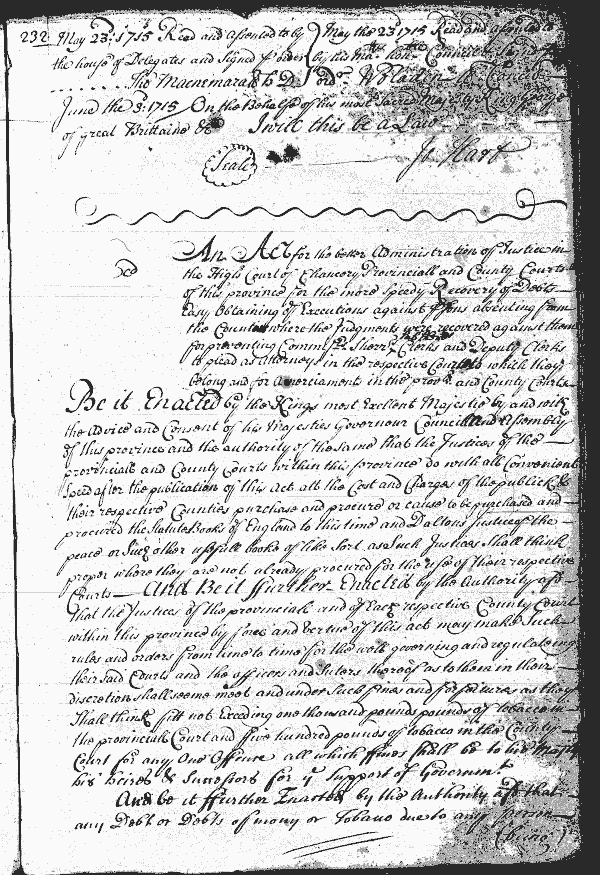 232
May 23: 1715 Read and assented to by
the house of Delegates and Signed p order
Tho Macnemara
May the 23 1715 Read and assented to
by his Ma honble Councill
June the 3: 1715 On the Behalfe of his most Sacred Majesty King
of great Brittaine &c I will this be a Law
Seale
Jo Hart
An Act for the better Administration of Justice in
the High Court of Chancery Provinciall and County Courts
of this province for the more Speedy Recovery of Debts
Easy Obtaining of Executions against psons absenting from
the County where the Judgments were recovered against them
for preventing Sherr Clerks and Deputy Clerks
to plead as Attorneys in the respective Courts to which they
belong and for Amerciaments in the provll and County Courts
Be it Enacted by the Kings most Exellent Majestie by and with
the Advice and Consent of his Majesties Governour Councill and Assembly
of this province and the authority of the Same that the Justices of the
provinciall and County Courts within this province do with all Convenient
Speed after the publication of this Act att the Cost and Charges of the publick &
their respective Counties purchase and procure or cause to be purchased and
procured the Statute Books of England to this time and Daltons Justice of the
peace or Such other usefull books of like Sort as Such Justices Shall think
proper where they are not already procured for the use of their respective
Courts And Be it ffurther Enacted by the Authority afsd
that the Justices of the provinciall and of Each respective County Court
within this province by force and vertue of this act may make Such
rules and orders from time to time for the well governing and regulateing
their Said Courts and the officers and Sutors thereof as to them in their
discretion shall seeme meet and under Such fines and forfeitures as they
Shall think fitt not Exceding one thousand pounds pounds of tobacco in
the provinciall Court and ffive hundred pounds of tobacco in the County
Court for any One Offence all which ffines shall be to his Majty
his heires & Sucessors for ye Support of Governmt
And be it ffurther Enacted by the Authority afsd that
any Debt or Debts of mony or Tobaco due to any person